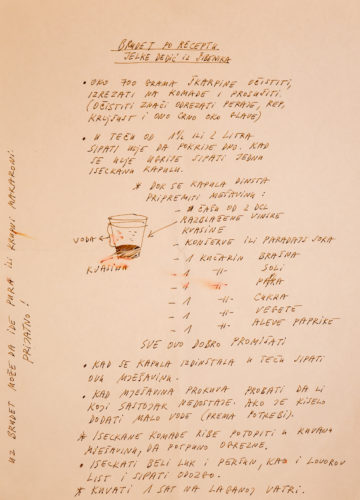 BRUDET PO RECEPTU
JELKE DEDIĆ IZ ŠIBENIKA
• OKO 700 GRAMA ŠKARPINE OČISTITI,
IZREZATI NA KOMADE I PROSUŠITI.
(OČISTITI ZNAČI ODREZATI PERAJE, REP,
KRLJUŠT I ONO CRNO OKO GLAVE)
• U TEĆU OD 1½ ILI 2 LITRA
SIPATI ULJE DA POKRIJE DNO. KAD
SE ULJE UGRIJE SIPATI JEDNU
ISECKANU KAPULU.
* DOK SE KAPULA DINSTA
PRIPREMITI MEŠAVINU:
- U ČAŠU OD 2 DCL
RAZBLAŽENE VINSKE
KVASINE
VODA
KVASINA
- KONSERVE ILI PARADAJS SOKA
- 1 KUĆARIN BRAŠNA
- 1 -II- SOLI
- 1 -II-
- 1 -II- CUKRA
- 1 -II- VEGETE
- 1 -II- ALEVE PAPRIKE
SVE OVO DOBRO PROMIŠATI
• KAD SE KAPULA IZDINSTALA U TEĆU SIPATI
OVU MJEŠAVINU.
• KAD MJEŠAVINA PROKUVA PROBATI DA LI
KOJI SASTOJAK NEDOSTAJE. AKO JE KISELO
DODATI MALO VODE (PREMA POTREBI).
* ISECKANE KOMADE RIBE POTOPITI U KUVANU
MJEŠAVINU, DA POTPUNO OGREZNE.
• ISECKATI BELI LUK I PERŠUN, KAO I LOVOROV
LIST I SIPATI ODOZGO.
* KUVATI 1 SAT NA LAGANOJ VATRI.
UZ BRUDET MOŽE DA IDE PURA ILI KROMPI MAKARONI.
PRIJATNO!